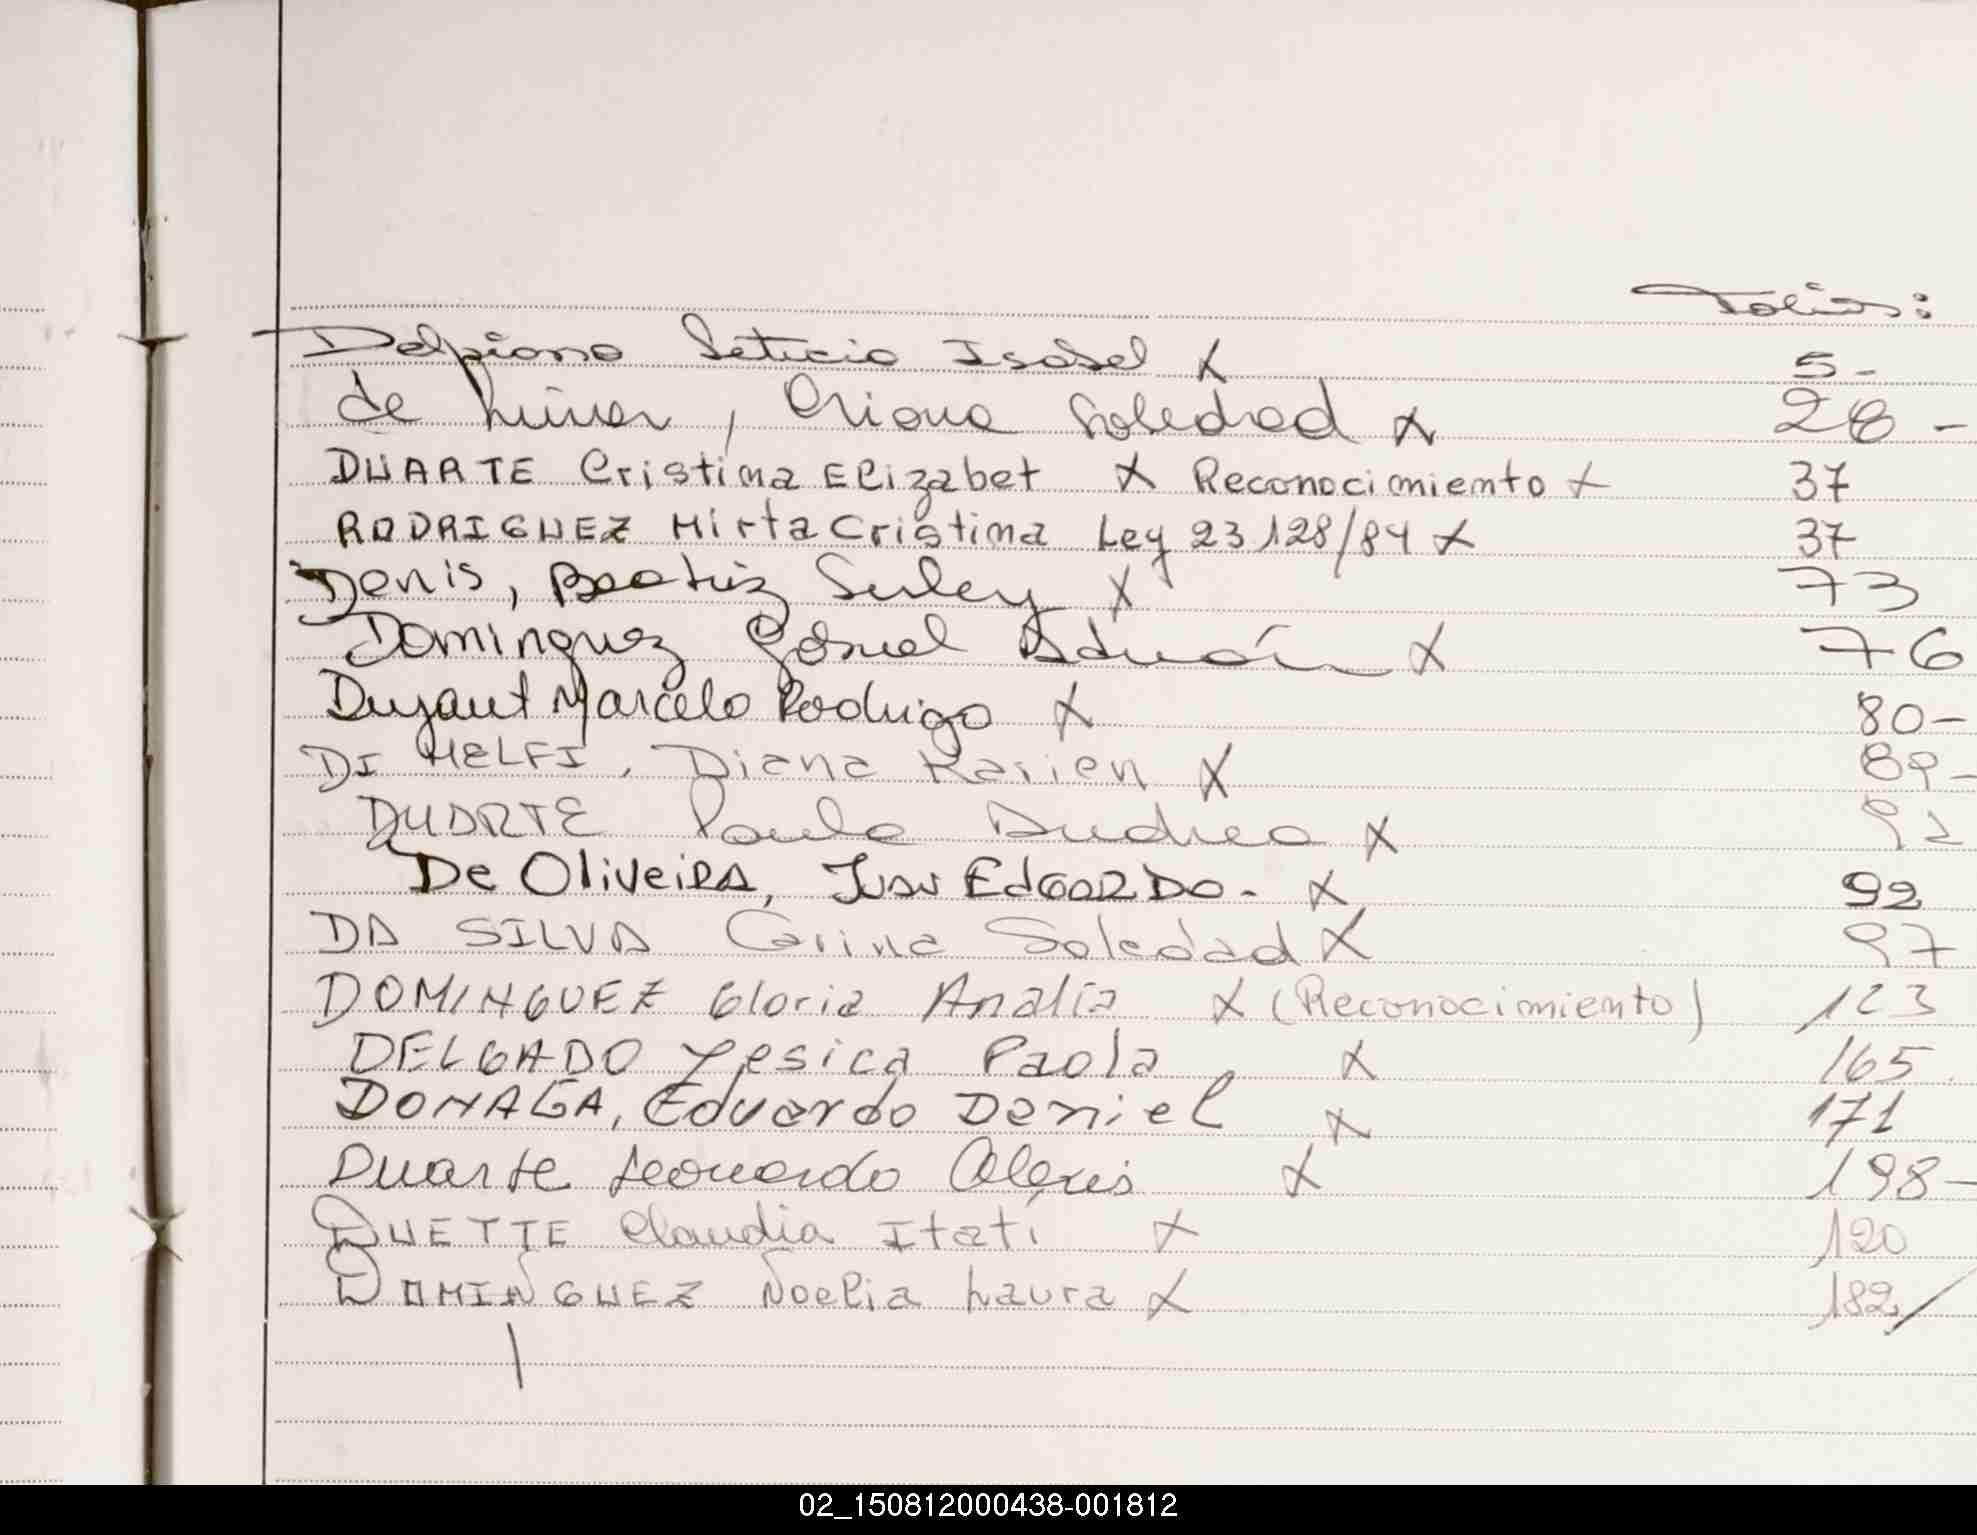 Folios:
Delpiano Leticia Isabel X 5-
de Lima, Oriana Soledad X 28-
DUARTE Cristina Elizabet X Reconocimiento X 37
RODRIGUEZ Mirta Cristina Ley 23128/84 X 37
Denis, Beatriz Suley X 73
Dominguez Gabriel Adrián X 76
Marcelo Rodrigo X 80-
DI MELFI, Diana Karien X 89-
DUARTE Paula Andrea X 92
De OLiveiRA, JuAN EdGARDO- X 92
DA SILVA Carina Soledad X 97
DOMINGUEZ Gloria Analía X (Reconocimiento) 123
DELGADO Yesica Paola X 165
DONAGA, Eduardo Daniel X 171
Duarte Leonardo Alexis X 198-
DUETTE Claudia Itatí X 120
DOMINGUEZ Noelia Laura X 182/
02_150812000438-001812